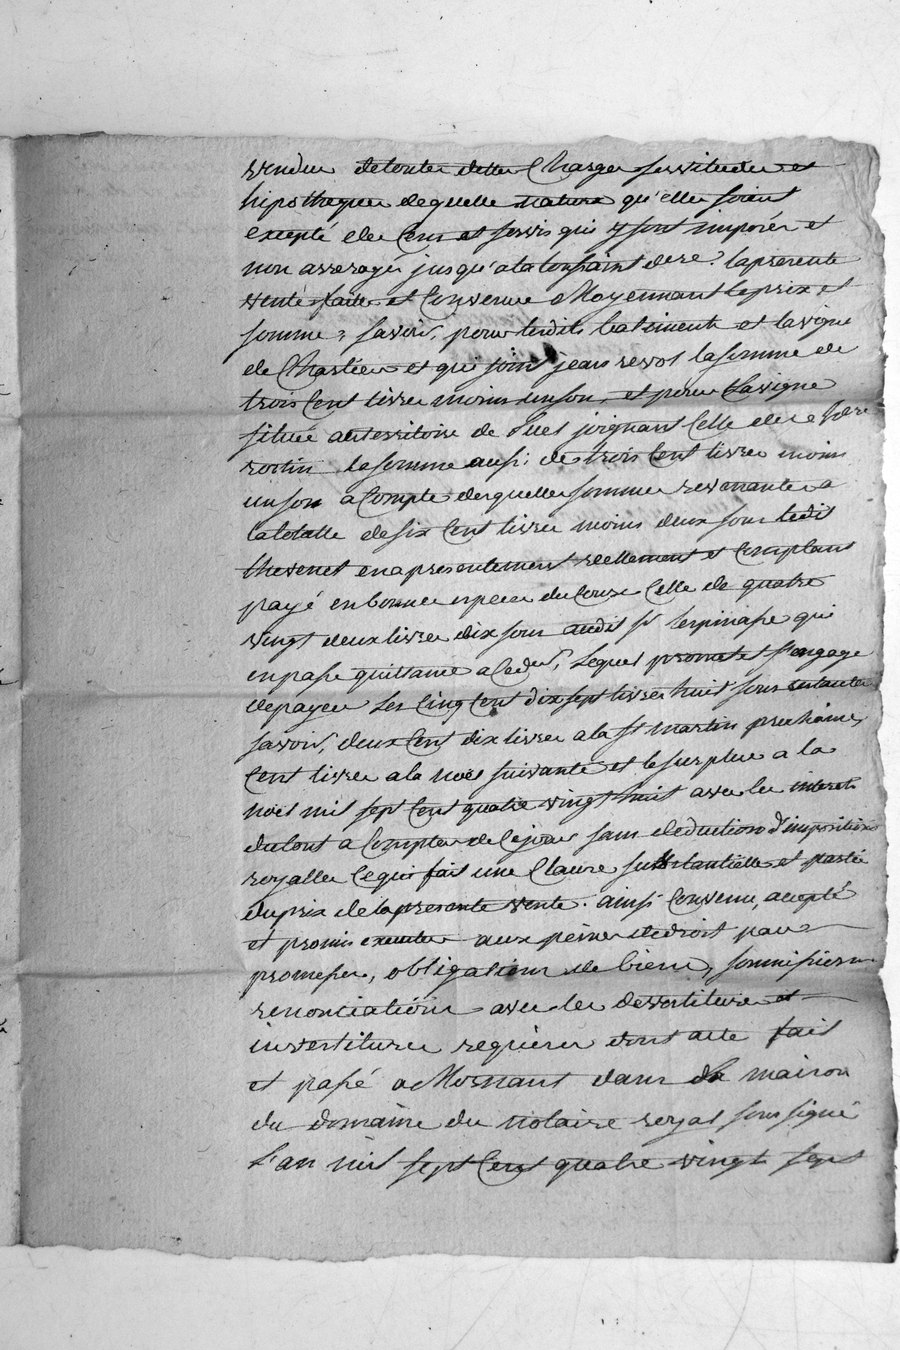 vendue de toutes dettes Charges servitudes et
hipotheques de quelle nature qu'elles soient
excepté des Cens et servis qui y sont imposés et
non arreragés jusqu'a la toussaint der.e? la presente
vente faite et Convenue Moyennant le prix et
somme; savoir, pour lesdits batiments et la vigne
de Chastier et qui joint jean revol la somme de
trois Cent livres moins un sou, et pour La vigne
située au territoire de joignant Celle de
la somme aussi de trois Cent livres moins
un son a Compte desquelles sommes revenantes a
la totalle de six Cent livres moins deux sous ledit
thevenet en a presentement reellement et Comptant
payé en bonnes especes du Cours Celle de quatre
vingt deux livres dix sous audit sr lespinasse qui
en passe quittance a Ledit, Lequel promet et s'engage
de payer Les Cinq Cent dix sept livres huit sous restantes
savoir, deux Cent dix livres a la st martin prochaine,
Cent livres a la noel suivante et le surplus a la
noel mil sept Cent quatre vingt huit avec les interets
du tout a Compter de Ce jour sans deduction d'impositions
royalles Ce qui fait une Clause substantielle et partie
du prix de la presente vente. ainsi Convenu, accepté
et promis executer aux peines de droit par
promesses, obligations de biens, soumissions
renonciations avec les devestitures et
investitures requises dont acte fait
et passé a Mornant dans la maison
du domaine du notaire royal soussigné
L'an mil sept Cent quatre vingt sept